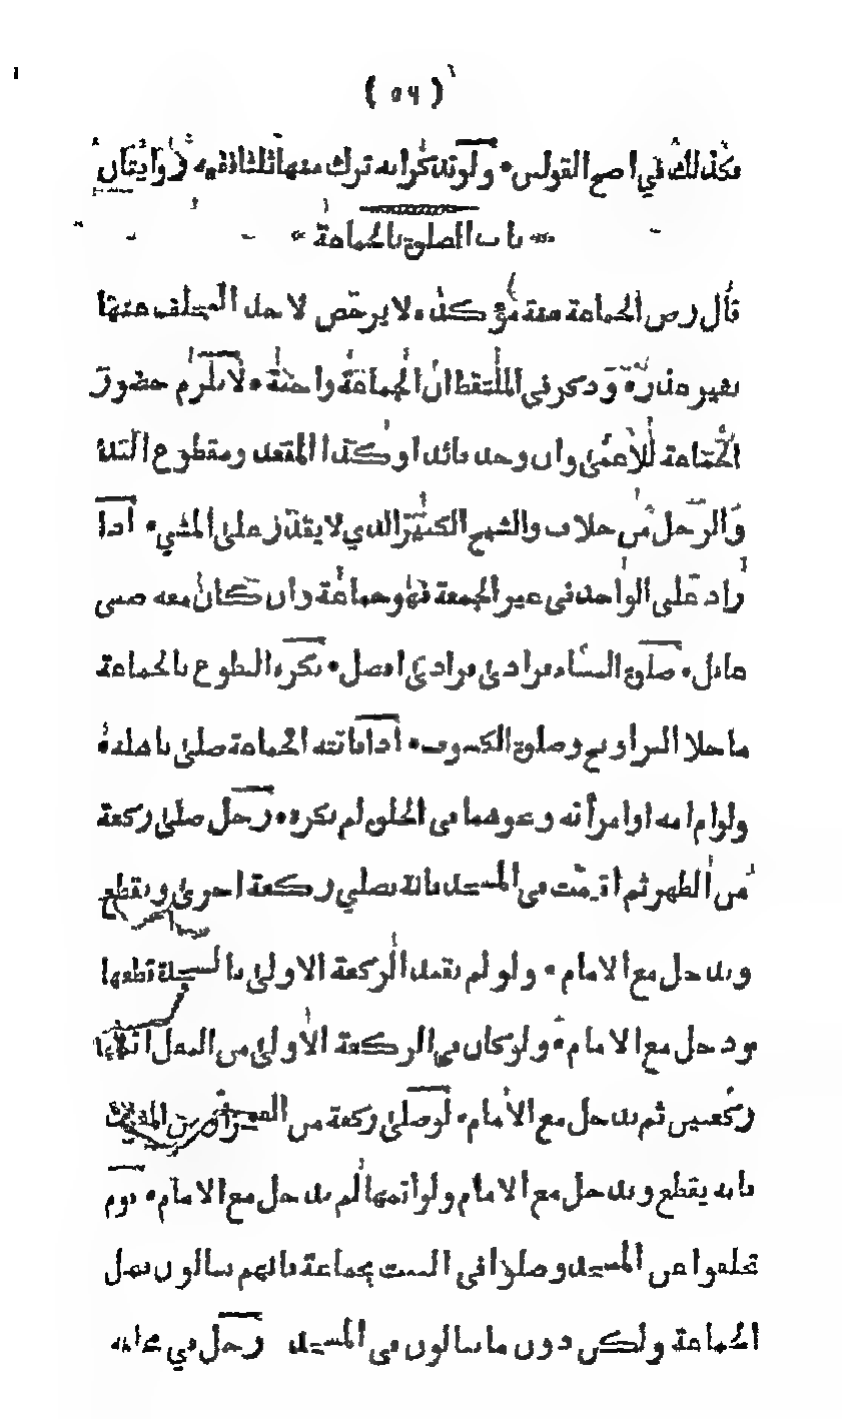 ( ٥٤ )
فكذلك في اصح القولين • ولو تذكر انه ترك منها ثلثا ففيه روايتان
باب الصلوة بالجماعة
قال رض الجماعة سنة مؤكدة لا يرخص لاحد التخلف عنها
بغير عذر وذكر في الملتقط ان الجماعة واجبة • لا يلزم حضور
الجماعة للاعمى وان وجد قائدا وكذا المقعد ومقطوع اليد
والرجل من خلاف والشيخ الكبير الذي لا يقدر على المشي • اذا
زاد على الواحد في غير الجمعة فهو جماعة وان كان معه صبي
عاقل • صلوة النساء فرادى فرادى افضل • يكره التطوع بالجماعة
ما خلا التراويح وصلوة الكسوف • اذا فاتته الجماعة صلى باهله
ولو ام امه او امرأته ونحوهما في الخلوة لم يكره • رجل صلى ركعة
من الظهر ثم اقيمت في المسجد فانه يصلي ركعة اخرى ويقطع
ويدخل مع الامام • ولو لم يقيد الركعة الاولى بالسجدة قطعها
ودخل مع الامام • ولو كان في الركعة الاولى من
ركعتين ثم يدخل مع الامام • لو صلى ركعة من الفجر او من المغرب
فانه يقطع ويدخل مع الامام ولو اتمها لم يدخل مع الامام • قوم
تخلفوا عن المسجد وصلوا في البيت بجماعة فانهم ينالون فضل
الجماعة ولكن دون ما ينالون في المسجد رجل في